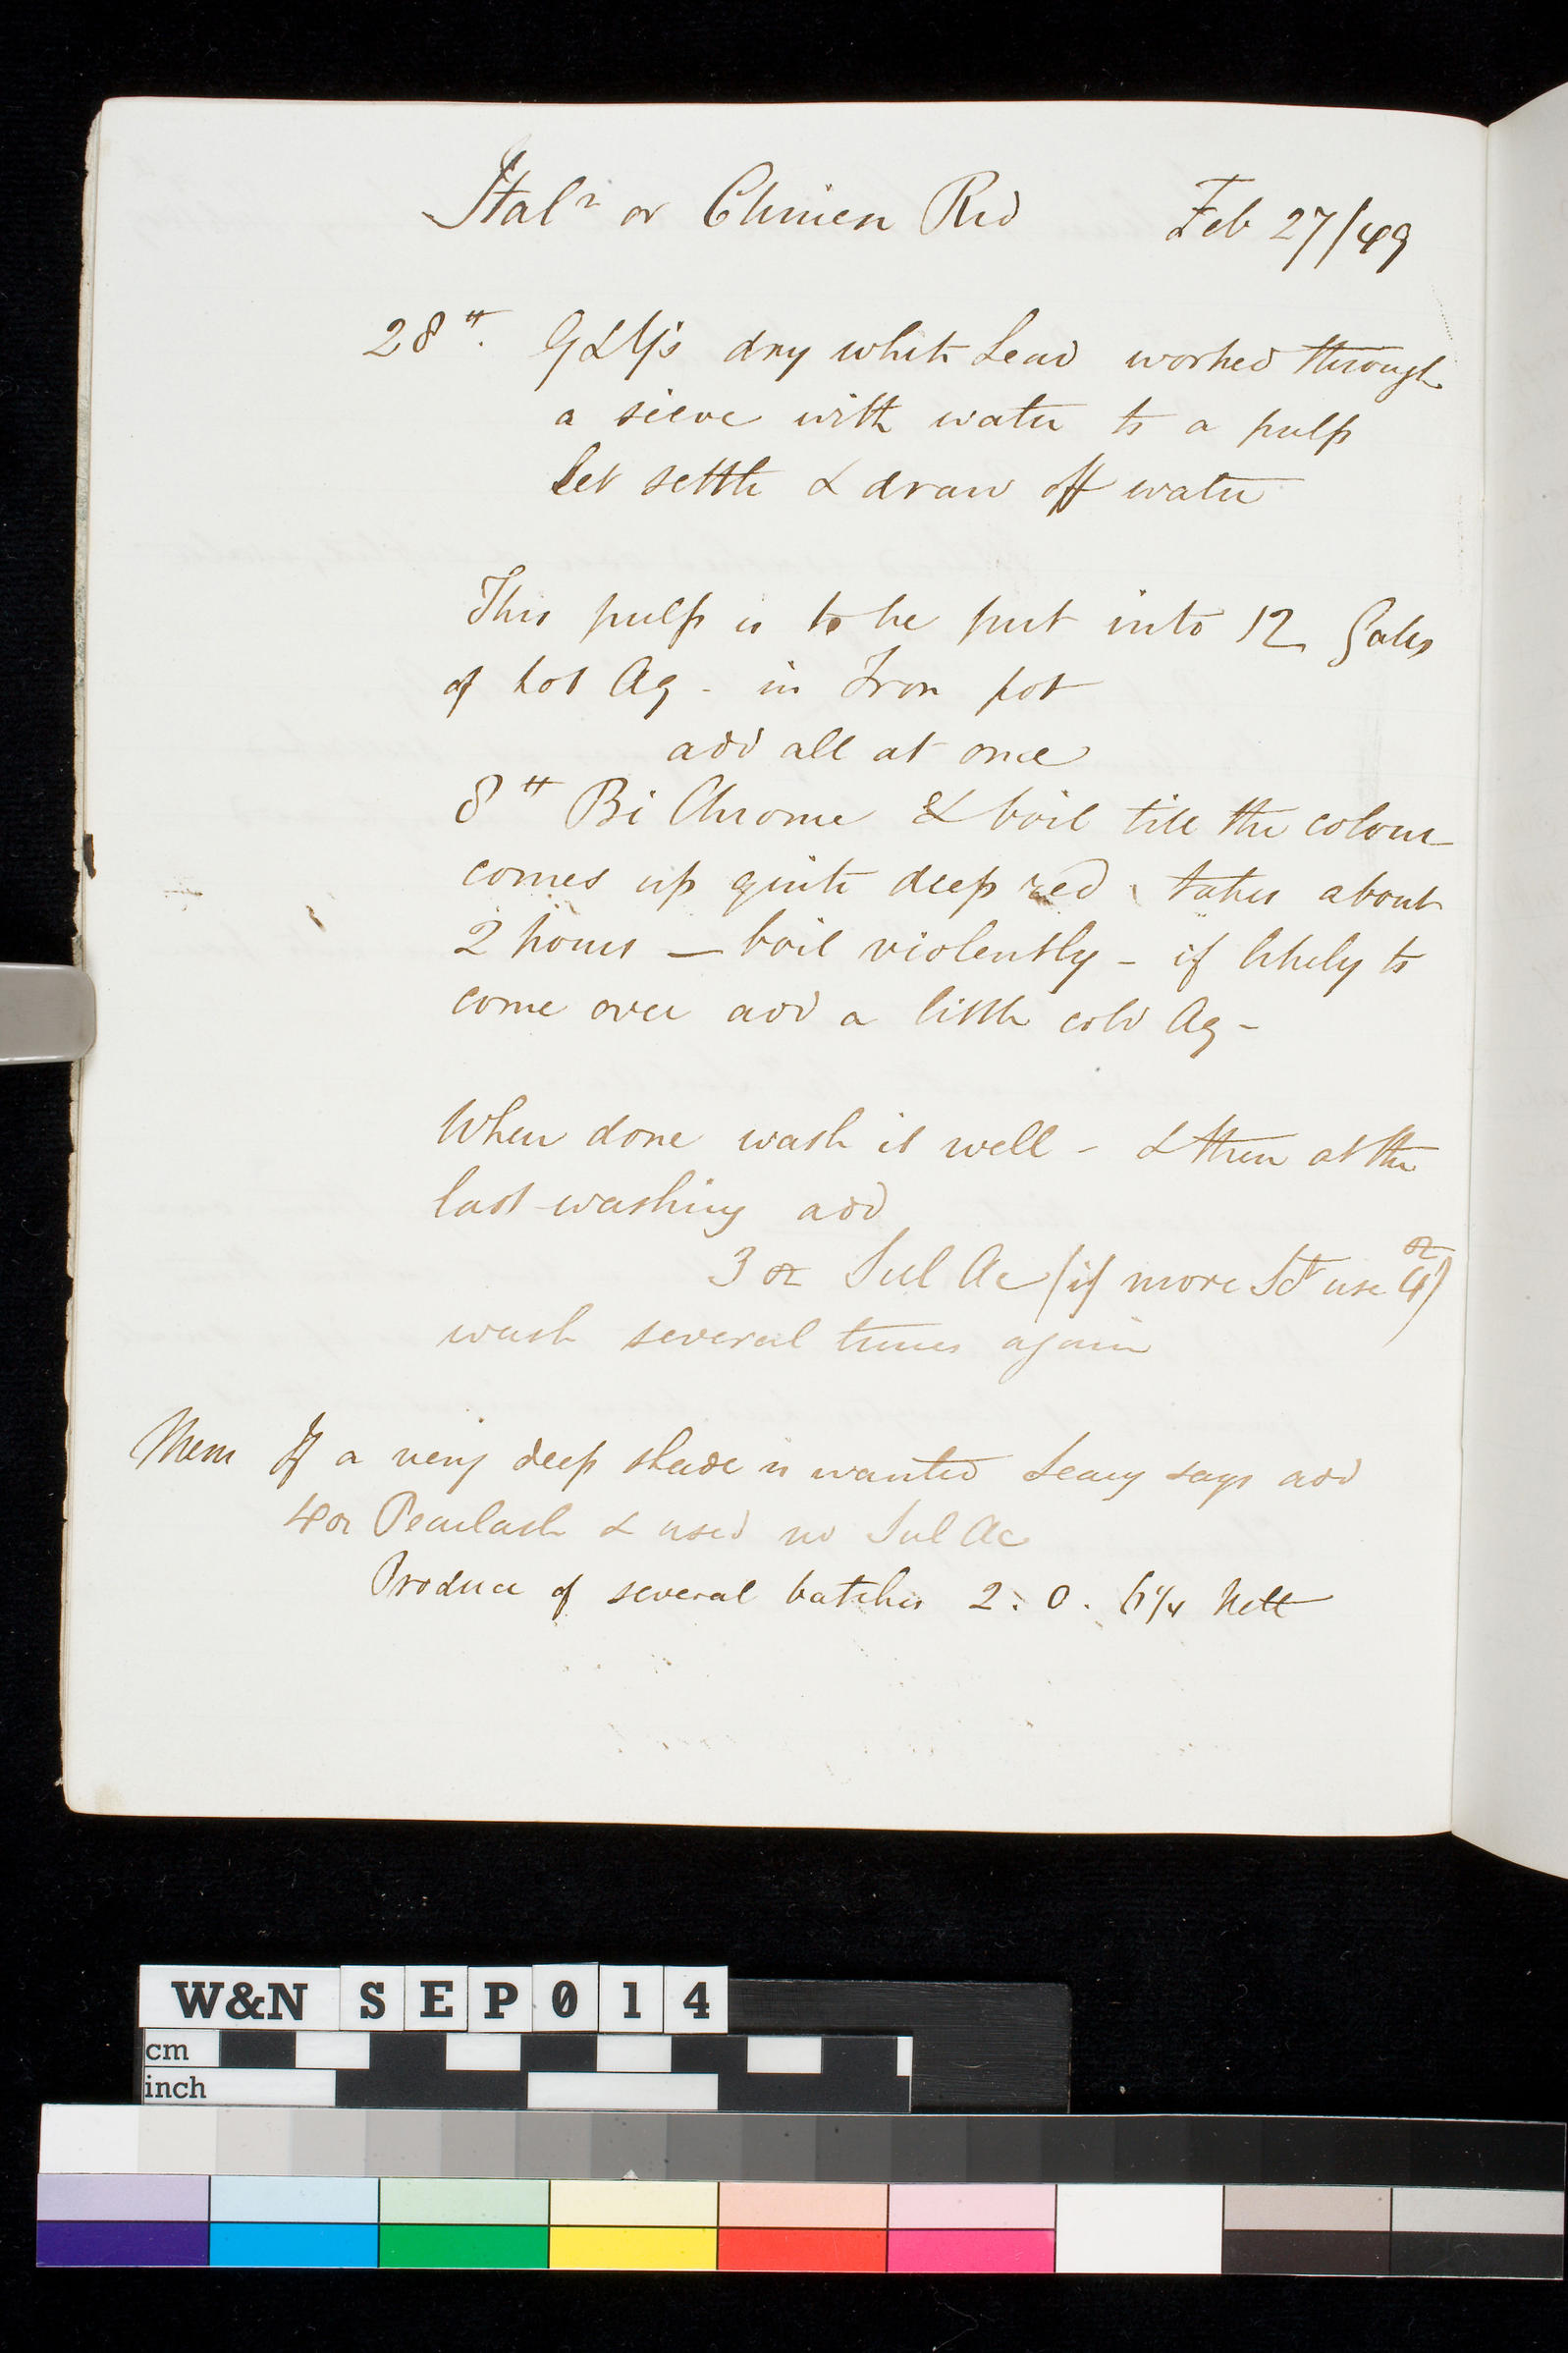 Ital<sup>n</sup> or Chinese Red Feb 27/49
28 ℔. G&Y's dry white Lead worked through
a sieve with water to a pulp
let settle & draw off water
This pulp is to be put into 12 Gals
of hot Aq - in Iron pot
add all at once
8 ℔ Bi Chrome & boil till the colour
comes up quite deep red takes about
2 hours — boil violently - if likely to
come over add a little cold Aq -
When done wash it well - & then at the
last washing add
3 oz Sul Ac (if more Sct use 4 oz)
wash several times again
Mem If a very deep shade is wanted says add
4 oz Pearlash & used no Sul Ac
Produce of several batches 2 . 0 . 6 1/4 Nett
W&N SEP014
cm
inch